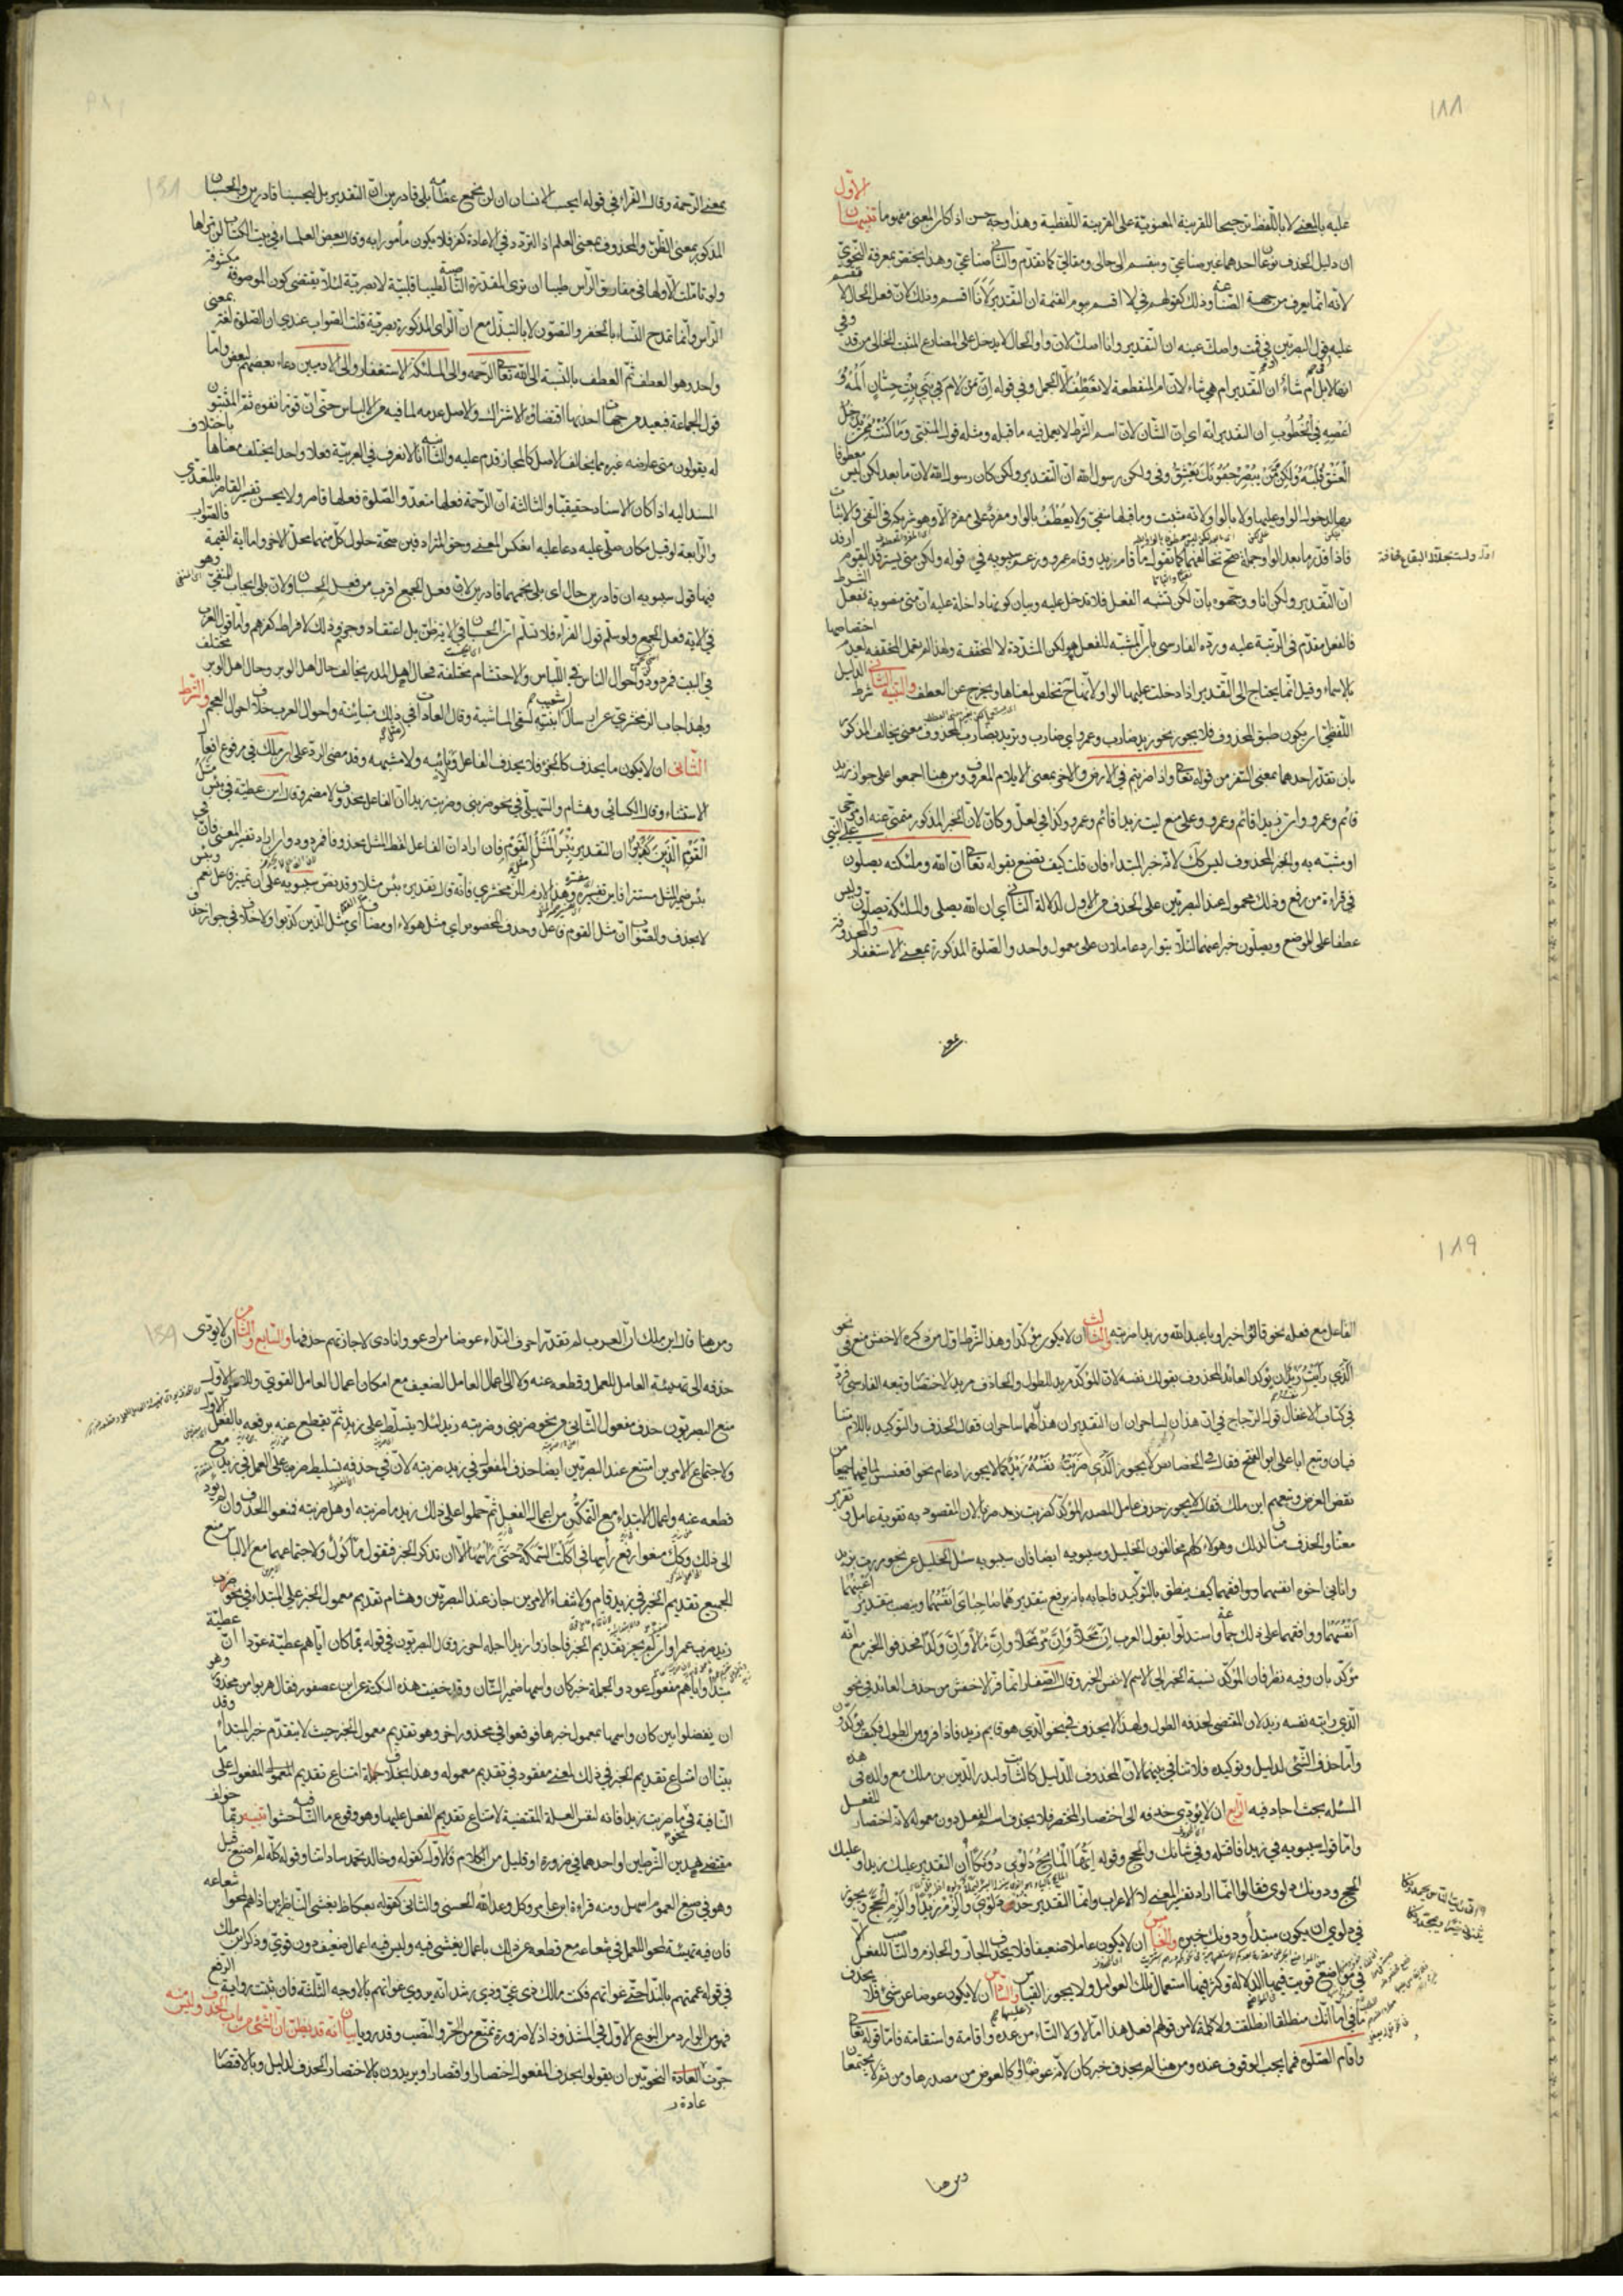 ١٨٨
الاول
عليه بالمعنى لا باللفظ ترجيحا للقرينة المعنوية على القرينة اللفظية وهذا وجه حسن اذا كان المعنى مفهوما تنبيهان
ان دليل الحذف نوعان احدهما غير صناعي وينقسم الى حالي ومقالي كما تقدم والثاني صناعي وهذا يختص بمعرفة النحويون
لانه انما يعرف من جهة الصناعة وذلك كقولهم في لا اقسم بيوم القيمة ان التقدير لانا اقسم وذلك لان فعل الحال لا يقسم
عليه في قول البصريين وفي قمت واصك عينه ان التقدير وانا اصك لان واو الحال لا يدخل على المضارع المثبت الخالي من قد وفي
انها لابل ام شاء ان التقدير ام هي شاء لان ام المنقطعة لا تعطف الا الجمل وفي قوله ان من لام في بني بنت حسان المه و
اعصه في الخطوب ان التقدير انه اي ان الشان لان اسم الشرط لا يعمل فيه ما قبله ومثله قول المتنبي وما كنت ممن يدخل
العشق قلبه ولكن من يبصر جفونك يعشق وفي ولكن رسول الله ان التقدير ولكن كان رسول الله لان ما بعد لكن ليس معطوفا
بها لدخول الواو عليها ولا بالواو لانه مثبت وما قبلها منفي ولا يعطف بالواو مفرد على مفرد الا وهو شريكه في النفي والاثبات
فاذا قدر ما بعد الواو جملة صح تخالفهما كما تقول ما قام زيد وقام عمرو وزعم سيبويه في قوله ولكن متى يسترفد القوم ارفد
ان التقدير ولكن انا ووجهوه بان لكن تشبه الفعل فلا تدخل عليه وبيان كونها داخلة عليه ان متى منصوبة بفعل الشرط
فالفعل مقدم في الرتبة عليه ورده الفارسي بان المشبه للفعل هو لكن المشددة لا المخففة ولهذا لم تعمل المخففة لعدم اختصاصها
بالاسماء وقيل انما يحتاج الى التقدير اذا دخلت عليها الواو لانها ح تخلص لمعناها ويخرج عن العطف والتنبيه الثاني شرط الدليل
اللفظي ان يكون طبق المحذوف فلا يجوز نحو زيد ضارب وعمرو اي ضارب وتريد بضارب المحذوف معنى يخالف المذكور
بان تقدر احدهما بمعنى السفر من قوله تعالى واذا ضربتم في الارض والاخر بمعنى الايلام المعروف ومن هنا اجمعوا على جواز زيد
قائم وعمرو وان زيدا قائم وعمرو وعلى منع ليت زيدا قائم وعمرو وكذا في لعل وكان لان الخبر المذكور متمنى عنه او مترجى
او مشبه به والخبر المحذوف ليس كذلك لانه خبر المبتدا فان قلت كيف تصنع بقوله تعالى ان الله وملئكته يصلون على النبي
في قراءة من رفع وذلك محمول عند البصريين على الحذف من الاول لدلالة الثاني اي ان الله يصلي والملئكة يصلون وليس
عطفا على الموضع ويصلون خبرا عنهما لئلا يتوارد عاملان على معمول واحد والصلوة المذكورة بمعنى الاستغفار والمحذوفة
بمعنى
بمعنى الرحمة وقال الفراء في قوله ايحسب الانسان ان لن نجمع عظامه بلى قادرين ان التقدير بل ليحسبنا قادرين والحسبان
المذكور بمعنى الظن والمحذوف بمعنى العلم اذ التردد في الاعادة كفر فلا يكون مأمورا به وقال بعض العلماء في بيت الكتاب لن تراها
ولو تاملت الا ولها في مفارق الراس طيبا ان ترى المقدرة الناصبة لطيبا قلبية لا بصرية لئلا يقتضي كون الموصوفة مكشوفة
الراس وانما تمدح النساء بالخفر والتصون لا بالتبذل مع ان الراى المذكورة بصرية قلت الصواب عندي ان الصلوة لغة بمعنى
واحد وهو العطف ثم العطف بالنسبة الى الله تعالى الرحمة والى الملئكة الاستغفار والى الادميين دعاء بعضهم لبعض واما
قول الجماعة فبعيد من جهات احديها اقتضاؤه الاشتراك والاصل عدمه لما فيه من الالباس حتى ان قوما نفوه ثم المثبتون
له يقولون متى عارضه غيره مما يخالف الاصل كالمجاز قدم عليه والثانية انا لا نعرف في العربية فعلا واحدا يختلف معناها باختلاف
المسند اليه اذا كان الاسناد حقيقيا والثالثة ان الرحمة فعلها متعد والصلوة فعلها قاصر ولا يحسن تفسير القاصر بالمتعدي
والرابعة لو قيل مكان صلى عليه دعا عليه انعكس المعنى وحق المترادفين صحة حلول كل منهما محل الاخر واما اية القيمة فالصواب
فيها قول سيبويه ان قادرين حال اي بلى نجمعها قادرين لان فعل الجمع اقرب من فعل الحسبان ولان بلى ايجاب للمنفي وهو
في الاية فعل الجمع ولو سلم قول الفراء فلا نسلم ان الحسبان في الاية ظن بل اعتقاد وجزم وذلك لافراط كفرهم واما قول المعرب
في البيت فمردود واحوال الناس في اللباس والاحتشام مختلفة فحال اهل المدر يخالف حال اهل الوبر وحال اهل الوبر مختلف
وبهذا اجاب الزمخشري عن ارسال شعيب ابنتيه لسقي الماشية وقال العادات في ذلك متباينة واحوال العرب خلاف احوال العجم والشرط
الثاني ان لا يكون ما يحذف كالجزء فلا يحذف الفاعل ولا نائبه ولا مشبهه وقد مضى الرد على ابن ملك في مرفوع افعال
الاستثناء وقال الكسائي وهشام والسهيلي في نحو ضربني وضربت زيدا ان الفاعل محذوف لا مضمر وقال ابن عطية في بئس مثل
القوم الذين كذبوا ان التقدير بئس المثل مثل القوم فان اراد ان الفاعل لفظ المثل محذوفا فمردود وان اراد تفسير المعنى وان في
بئس ضمير المثل مستترا فاين تفسيره وهذا لازم للزمخشري فانه قال في تقدير بئس مثلا وقد نص سيبويه على ان تمييز فاعل نعم وبئس
لا يحذف والصواب ان مثل القوم فاعل وحذف المخصوص اي مثل هؤلاء او مضاف اي مثل الذين كذبوا ولا خلاف في جواز حذف
١٨٩
الفاعل مع فعله نحو قالوا خيرا ويا عبد الله وزيدا ضربته والثالث ان لا يكون مؤكدا وهذا الشرط اول من ذكره الاخفش منع في نحو
الذي رأيت زيد ان يؤكد العائد المحذوف بقولك نفسه لان المؤكد مريد للطول والحاذف مريد للاختصار وتبعه الفارسي فرد
في كتاب الاغفال قول الزجاج في ان هذان لساحران ان التقدير ان هذان لهما ساحران فقال الحذف والتوكيد باللام متنا
فيان وتبع ابا علي ابو الفتح فقال في الخصائص لا يجوز الذي ضربت نفسه زيد كما لا يجوز ادغام نحو اقعنسس لما فيهما جميعا من
نقض الغرض وتبعهم ابن ملك فقال لا يجوز حذف عامل المصدر المؤكد كضربت ضربا لان المقصود به تقوية عامله وتقرير
معناه والحذف مناف لذلك وهؤلاء كلهم مخالفون للخليل وسيبويه ايضا فان سيبويه سئل الخليل عن نحو مررت بزيد
واتاني اخوه انفسهما كيف ينطق بالتوكيد فاجابه بانه يرفع بتقدير هما صاحباي انفسهما وينصب بتقدير اعينهما
انفسهما ووافقهما على ذلك جماعة واستدلوا بقول العرب ان محلا وان مرتحلا وان مالا وان ولدا فحذفوا الخبر مع انه
مؤكد بان وفيه نظر فان المؤكد نسبة الخبر الى الاسم لا نفس الخبر وقال الصفار انما فر الاخفش من حذف العائد في نحو
الذي رايته نفسه زيد لان المقتضي لحذفه الطول ولهذا لا يحذف في نحو الذي هو قايم زيد فاذا فروا من الطول فكيف يؤكدون
واما حذف الشئ لدليل وتوكيده فلا تنافي بينهما لان المحذوف للدليل كالثابت ولبدر الدين بن ملك مع والده في هذه
المسئلة بحث اجاد فيه الرابع ان لا يؤدي حذفه الى اختصار المختصر فلا يحذف اسم الفعل دون معموله لانه اختصار للفعل
واما قول سيبويه في زيدا فاقتله وفي شأنك والحج وقوله يا ايها المائح دلوي دونكا ان التقدير عليك زيدا وعليك
الحج ودونك دلوي فقالوا انما اراد تفسير المعنى لا الاعراب وانما التقدير خذ دلوي والزم زيدا والزم الحج ويجوز
في دلوي ان يكون مبتدأ ودونك خبره والخامس ان لا يكون عاملا ضعيفا فلا يحذف الجار والجازم والناصب للفعل الا
في مواضع قويت فيها الدلالة وكثر فيها استعمال تلك العوامل ولا يجوز القياس عليها والسادس ان لا يكون عوضا عن شئ فلا يحذف
ما في اما انت منطلقا انطلقت ولا كلمة لا من قولهم افعل هذا اما لا ولا التاء من عدة واقامة واستقامة فاما قوله تعالى
واقام الصلوة فمما يجب الوقوف عنده ومن هنا لم يحذف خبر كان لانه عوض او كالعوض من مصدرها ومن ثم لا يجتمعان
ومن هنا
ومن هنا قال ابن ملك ان العرب لم تقدر احرف النداء عوضا من ادعو وانادي لاجازتهم حذفها والسابع والثامن ان لا يؤدي
حذفه الى تهيئة العامل للعمل وقطعه عنه ولا الى اعمال العامل الضعيف مع امكان اعمال العامل القوي وللامر الاول
منع البصريون حذف مفعول الثاني من نحو ضربني وضربته زيد لئلا يتسلط على زيد ثم يقطع عنه برفعه بالفعل الاول
ولاجتماع الامرين امتنع عند البصريين ايضا حذف المفعول في زيد ضربته لان في حذفه تسليط ضرب على العمل في زيد مع
قطعه عنه واعمال الابتداء مع التمكن من اعمال الفعل ثم حملوا على ذلك زيد ما ضربته او هل ضربته فمنعوا الحذف وان لم يؤد
الى ذلك وكذلك منعوا رفع رأسها في اكلت السمكة حتى رأسها الا ان تذكر الخبر فتقول مأكول ولاجتماعهما مع الالباس منع
الجميع تقديم الخبر في زيد قام ولانتفاء الامرين جاز عند البصريين وهشام تقديم معمول الخبر على المبتداء في نحو
زيد ضرب عمرا وان لم يجز تقديم الخبر فاجازوا زيدا اجله احرز وقال البصريون في قوله بما كان اياهم عطية عودا ان عطية
مبتدا واياهم مفعول عود والجملة خبر كان واسمها ضمير الشان وقد خفيت هذه النكتة على ابن عصفور فقال هربوا من محذور وهو
ان يفصلوا بين كان واسمها بمعمول خبرها فوقعوا في محذور اخر وهو تقديم معمول الخبر حيث لا يتقدم خبر المبتدا وقد
بينا ان امتناع تقديم الخبر في ذلك لمعنى مفقود في تقديم معموله وهذا بخلاف علة امتناع تقديم المفعول على ما
النافية في ما ضربت زيدا فانه لنفس العلة المقتضية لامتناع تقديم الفعل عليها وهو وقوع ما النافية حشوا تنبيه وربما خولف
مقتضى هذين الشرطين او احدهما في ضرورة او قليل من الكلام فالاول كقوله وخالد يحمد ساداتنا وقوله كله لم اصنع قيل
وهو في صيغ العموم اسهل ومنه قراءة ابن عامر وكل وعد الله الحسنى والثاني كقوله بعكاظ يغشى الناظرين اذا هم لمحوا شعاعه
فان فيه تهيئة لمحوا للعمل في شعاعه مع قطعه عن ذلك باعمال يغشى فيه وليس فيه اعمال ضعيف دون قوي وذكر ابن ملك
في قوله عممتهم بالندا حتى غواتهم فكنت مالك ذي غي وذي رشد انه يروى غواتهم بالاوجه الثلثة فان ثبتت رواية الرفع
فهو من الوارد من النوع الاول في الشذوذ اذ لا ضرورة تمنع من الجر والنصب وقد رويا بيان انه قد يظن ان الشئ من باب الحذف وليس منه
جرت العادة النحويين ان يقولوا يحذف المفعول اختصارا واقتصارا ويريدون بالاختصار الحذف لدليل وبالاقتصار
عادة